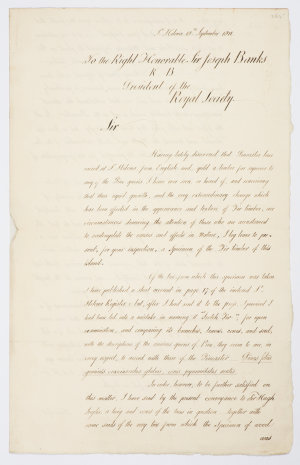 St. Helena 12th September 1811
To the Right Honorable Sir Joseph Banks
K B
President of the
Royal Society
Sir
Having lately discovered that Pinaster has
used at St. Helena, from English seed, yield a timber far superior to
any of the Fir genus I have ever seen, or heard of, and conceiving
that their rapid growth, and the very extraordinary change which
has been effected in the appearance and texture of the timber, are
circumstances deserving the attention of those who are accustomed
to contemplate the causes and effects in Nature, I beg leave to pre-
sent, for your inspection, a Specimen of the Fir timber of this
island.
Of the tree from which this specimen was taken
I have published a short account in page 17 of the inclosed St.
Helena Register: but, after I had sent it to the press, I found I
had been led into a mistake in naming it "Scotch Fir"; for upon
examination, and comparing its branches, leaves, cones, and seed,
with the descriptions of the various species of Pine, they seem to me, in
every respect, to accord with those of the Pinaster. Pinus foliis
geminis
In order, however, to be further satisfied on
this matter, I have sent by the present conveyance to Sir Hugh
Inglis, a twig and cones of the tree in question, together with
some seeds of the very tree from which the specimen of wood
was